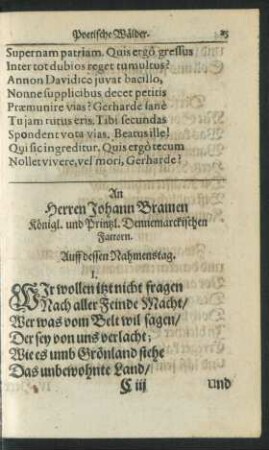 Poetische Wälder. 25
Supernam patriam. Quis ergò gressus
Inter tot dubios reget tumultus?
Annon Davidico juvat bacillo,
Nonne supplicibus decet petitis
Præmunire vias? Gerharde sanè
Tu jam tutus eris. Tibi secundas
Spondent vota vias. Beatus ille!
Qui sic ingreditur. Quis ergò tecum
Nollet vivere, vel mori, Gerharde?
An
Herren Johann Bramen
Königl. und Printzl. Dennemarckischen
Factorn.
Auff dessen Nahmenstag.
1.
WIr wollen itzt nicht fragen
Nach aller Feinde Macht/
Wer was vom Belt wil sagen/
Der sey von uns verlacht;
Wie es umb Grönland stehe
Das unbewohnte Land/
C iij und